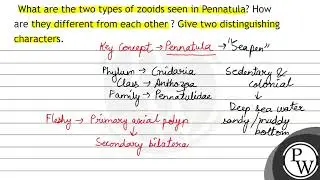 What are the two types of zooids seen in Pennatula? How
are they different from each other ? Give two distinguishing
characters.
Key Concept → Pennatula → "Sea pen"
Phylum → Cnidaria
Class → Anthozoa
Family → Pennatulidae
Sedentary &
colonial
↓
Deep sea water
sandy/muddy
bottom
Fleshy → Primary axial polyp
↓
Secondary bilateral
PW